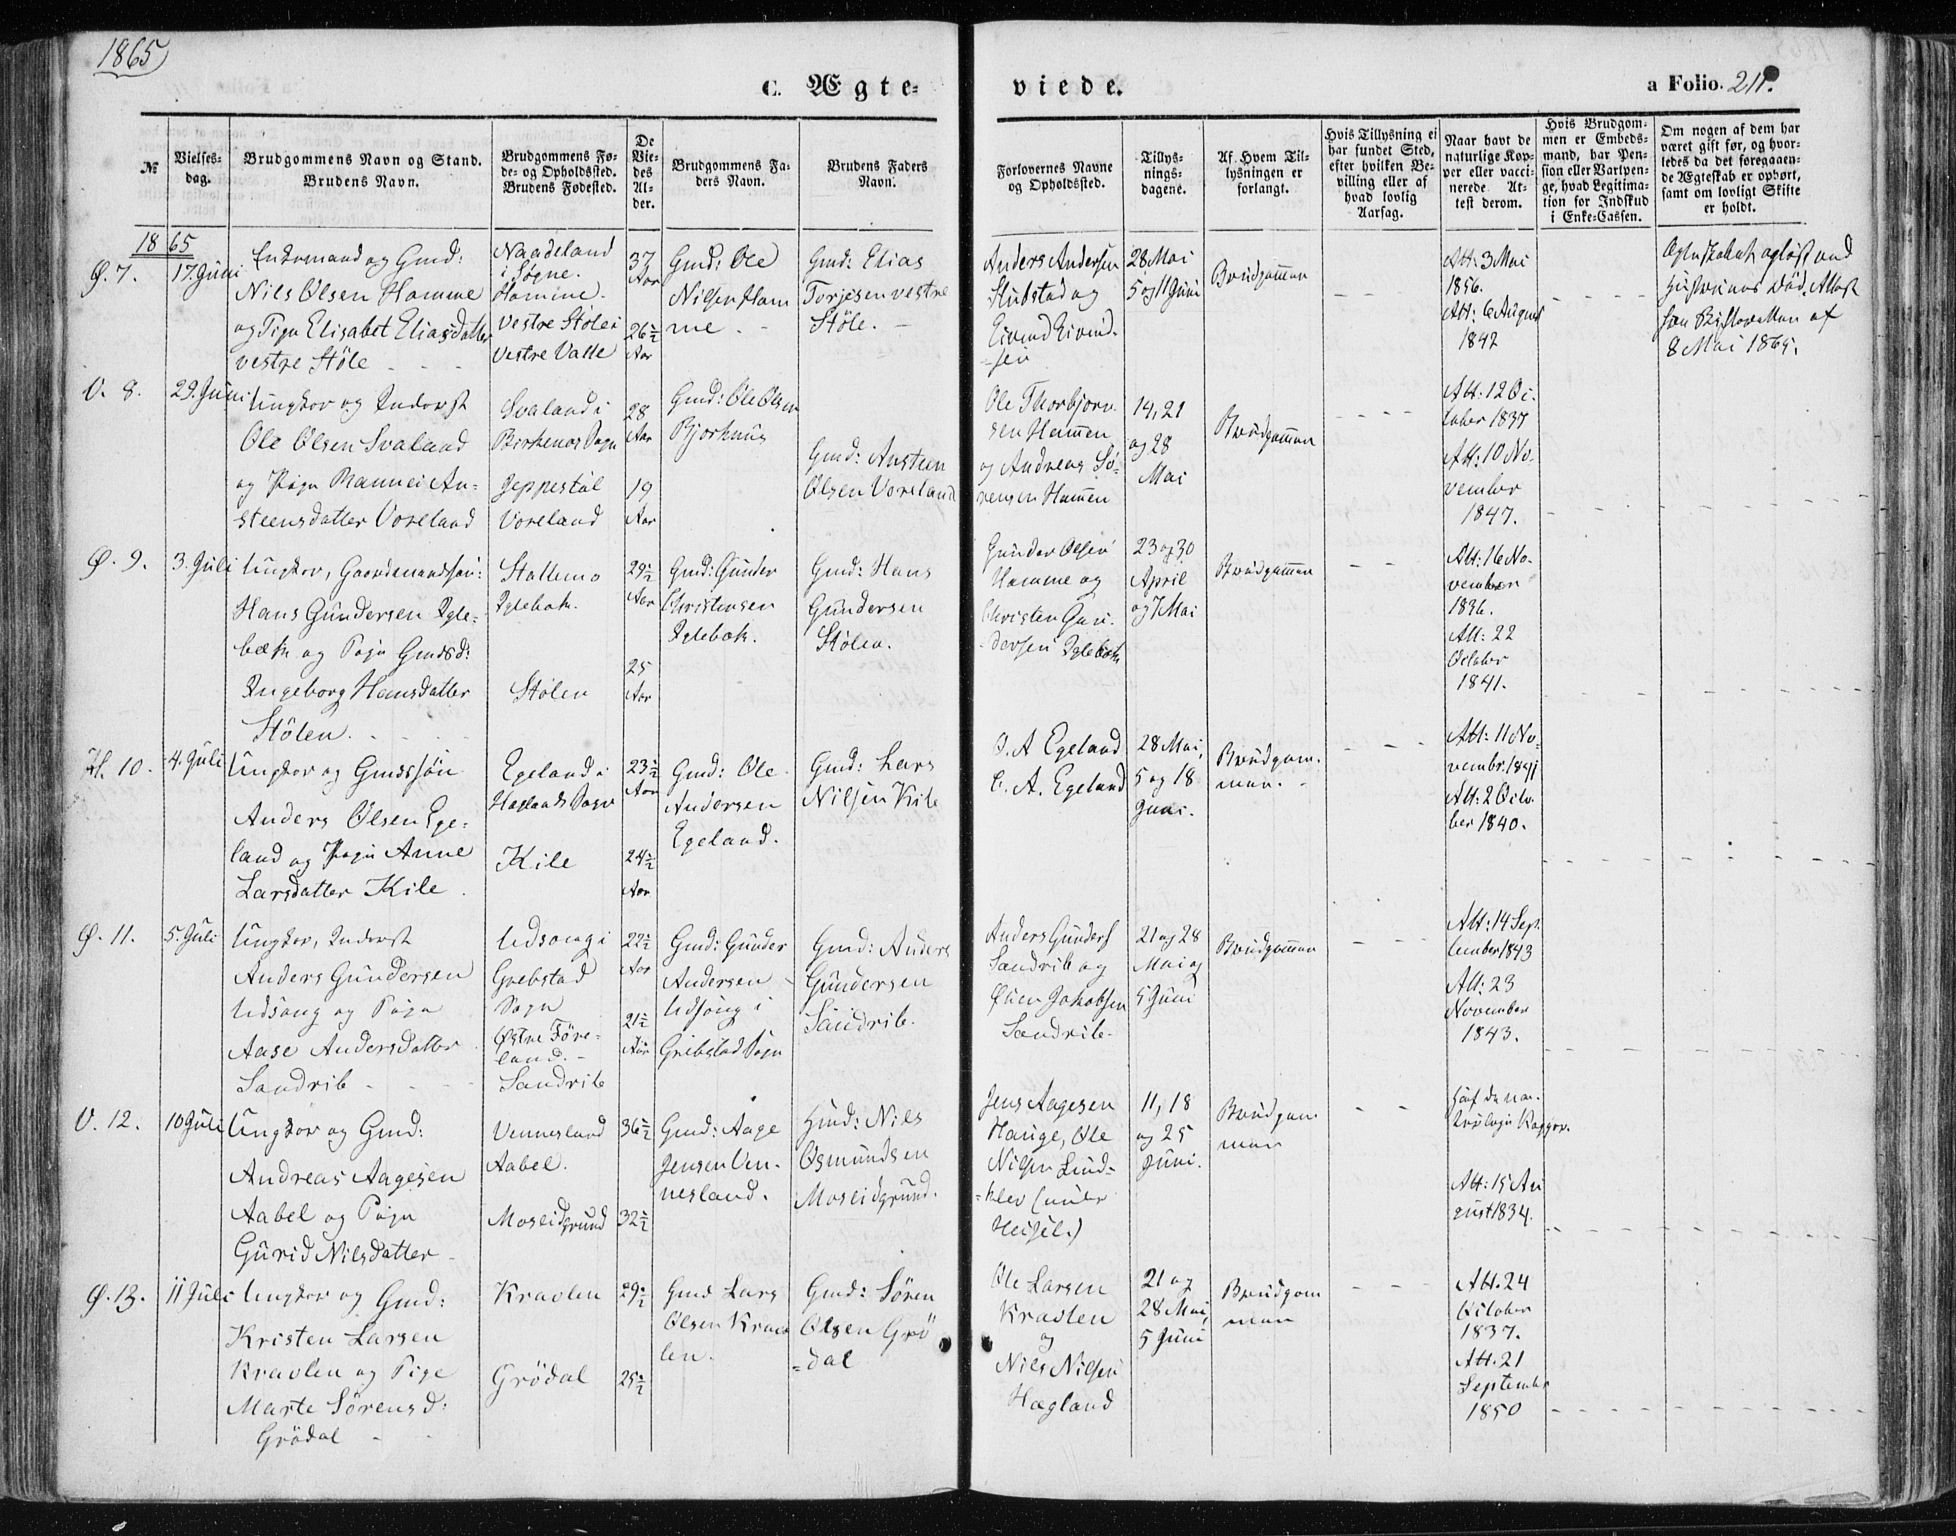 1865
C. Ægte-
viede.
a Folio. 211.
№
Vielses-
dag.
Brudgommens Navn og Stand.
Brudens Navn.
Brudgommens Fø-
de- og Opholdsted.
Brudens Fødested.
De
Vie-
des
Al-
der.
Brudgommens Fa-
ders Navn.
Brudens Faders
Navn.
Forlovernes Navne
og Opholdsted.
Tillys-
nings-
dagene.
Af Hvem Til-
lysningen er
forlangt.
Hvis Tillysning ei
har fundet Sted,
efter hvilken Be-
villing eller af
hvad lovlig
Aarsag.
Naar havt de
naturlige Kop-
per eller vacci-
nerede At-
test derom.
Hvis Brudgom-
men er Embeds-
mand, har Pen-
sion eller Vartpen-
ge, hvad Legitima-
tion for Indskud
i Enke-Cassen.
Om nogen af dem har
været gift før, og hvor-
ledes da det foregaaen-
de Ægteskab er ophørt,
samt om lovligt Skifte
er holdt.
1865
Ø. 7.
17. Juni
Enkemand og Gmd:
Nils Olsen Homme
og Pige Elisabet Eliasdatter
vestre Støle
Naadeland
i Søgne.
Homme.
Vestre Støle i
Vestre Valle
37
Aar
26 ½
Aar
Gmd: Ole
Nilsen Hom
me
Gmd: Elias
Torjesen vestre
Støle.
Anders Andersen
Stubstad og
Eivind Eivind-
sen
28 Mai
5 og 11 Juni
Brudgommen
Att: 3 Mai
1856.
Att: 6 August
1842
Ægteskabet opløst ved
Hustruens Død. Attest
fra Skifteretten af
8 Mai 1865.
V. 8.
29. Juni
Ungkar og Inderst
Ole Olsen Svaland
og Pige Rannei An-
steensdatter Voreland
Svaland i
Birkenæs Sogn
Jeppestøl
Voreland
28
Aar
19
Aar
Gmd: Ole Olsen
Bjorhuus
Gmd: Ansteen
Olsen Voreland
Ole Thorbjorn-
sen Hommen
og Andreas Sö-
rensen Hommen
14, 21
og 28
Mai
Brudgommen
Att: 12 Oc-
tober 1837
Att: 10 No-
vember
1847.
Ø. 9.
3. Juli
Ungkar, Gaardmandssøn:
Hans Gundersen Igle-
bæk og Pige Gmdsd:
Ingeborg Hansdatter
Stölen.
Stallemo
Iglebæk.
Stølen
29 ½
Aar
25
Aar
Gmd: Gunder
Christensen
Iglebæk.
Gmd: Hans
Gundersen
Stølen.
Gunder Olsen
Homme og
Christen Gun-
dersen Iglebæk
23 og 30
April
og 7 Mai
Brudgommen
Att: 16 No-
vember
1836.
Att: 22
October
1841.
H. 10.
4. Juli
Ungkar og Gmdssøn
Anders Olsen Ege-
land og Pige Anne
Larsdatter Kile.
Egeland i
Hæglands Sogn
Kile
23 ½
Aar
24 ½
Aar
Gmd: Ole
Andersen
Egeland.
Gmd: Lars
Nilsen Kile
O. A Egeland
C. A. Egeland
28 Mai,
5 og 18
Juni.
Brudgom-
men.
Att: 11 No-
vembr. 1841
Att: 2 Octo-
ber 1840.
Ø. 11.
5. Juli
Ungkar, Inderst
Anders Gundersen
Udsang og Pige
Aase Andersdatter
Sandrib
Udsang i
Greebstad
Sogn
Østre Före-
land.
Sandrib
22 ½
Aar
21 ½
Aar
Gmd: Gunder
Andersen
Udsang i
Greibstad Sogn
Gmd: Anders
Gundersen
Sandrib.
Anders Gunders
Sandrib og
Øuen Jakobsen
Sandrib.
21 og 28
Mai og
5 Juni
Brudgommen
Att: 14 Sept-
tember 1843
Att: 23
November
1843.
V. 12.
10 Juli
Ungkar og Gmd:
Andreas Aagesen
Aabel og Pige
Gurid Nilsdatter
Vennesland
Aabel.
Moseidgrund
36 ½
32 ½
Gmd: Aage
Jensen Ven-
nesland.
Hmd: Nils
Osmundsen
Moseidgrund.
Jens Aagesen
Hauge, Ole
Nilsen Lind-
klev (under
Heisel.)
11, 18
og 25
Juni.
Brudgom
men
Haft de na-
turlige Kopper.
Att: 15 Au
gust 1834.
Ø. 13.
11 Juli
Ungkar og Gmd:
Kristen Larsen
Kravlen og Pige
Marte Sörensd:
Grödal
Kravlen
Grödal
29 ½
25 ½
Gmd Lars
Olsen Krav
len.
Gmd: Sören
Olsen Grö
dal
Ole Larsen
Kravlen
og
Nils Nilsen
Hægland
21 og
28 Mai,
5 Juni
Brudgom
men
Att. 24
October
1837.
Att. 21
September
1850